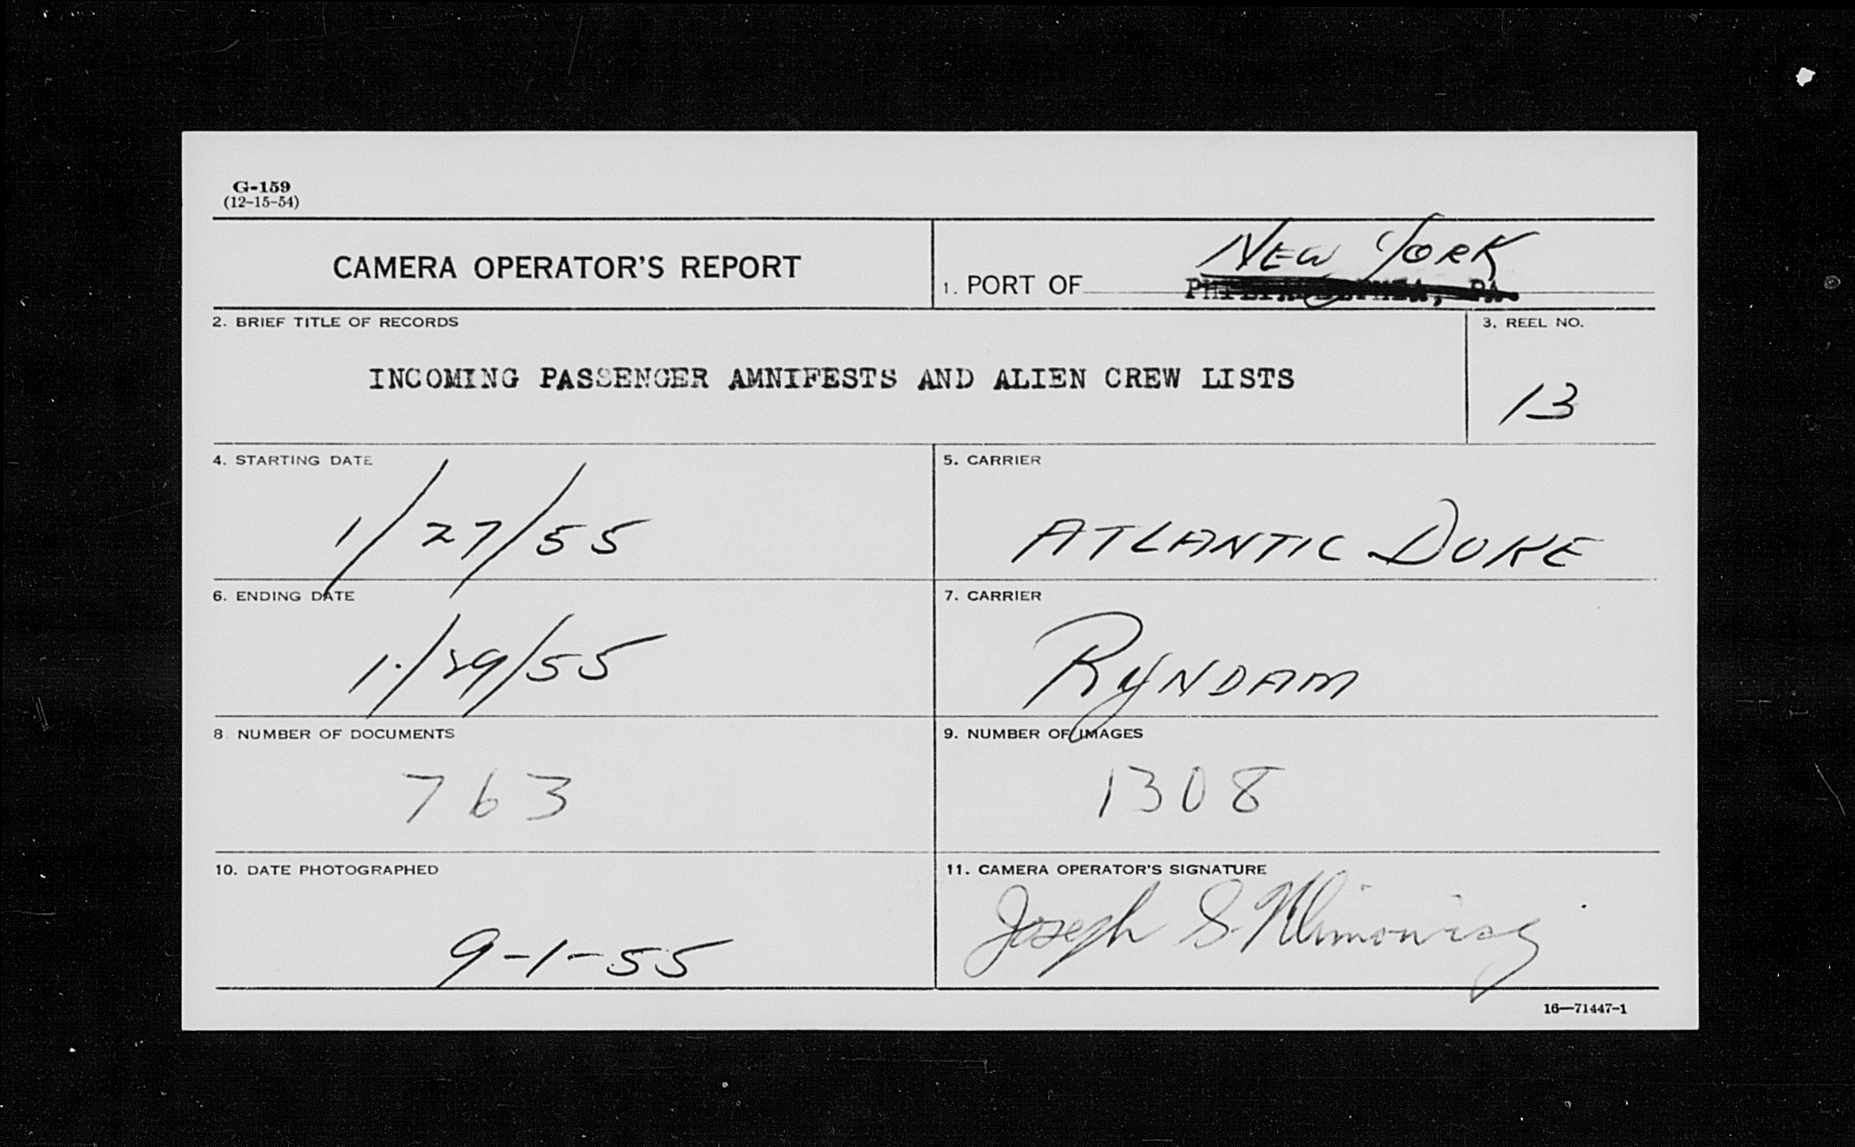 G-159
(12-15-54)
CAMERA OPERATOR'S REPORT
1. PORT OF NEW YORK
PHILADELPHIA, PA.
2. BRIEF TITLE OF RECORDS
INCOMING PASSENGER AMNIFESTS AND ALIEN CREW LISTS
3. REEL NO.
13
4. STARTING DATE
1/27/55
5. CARRIER
ATLANTIC DUKE
6. ENDING DATE
1/29/55
7. CARRIER
RYNDAM
8 NUMBER OF DOCUMENTS
763
9. NUMBER OF IMAGES
1308
10. DATE PHOTOGRAPHED
9-1-55
11. CAMERA OPERATOR'S SIGNATURE
Joseph S.
16—71447-1